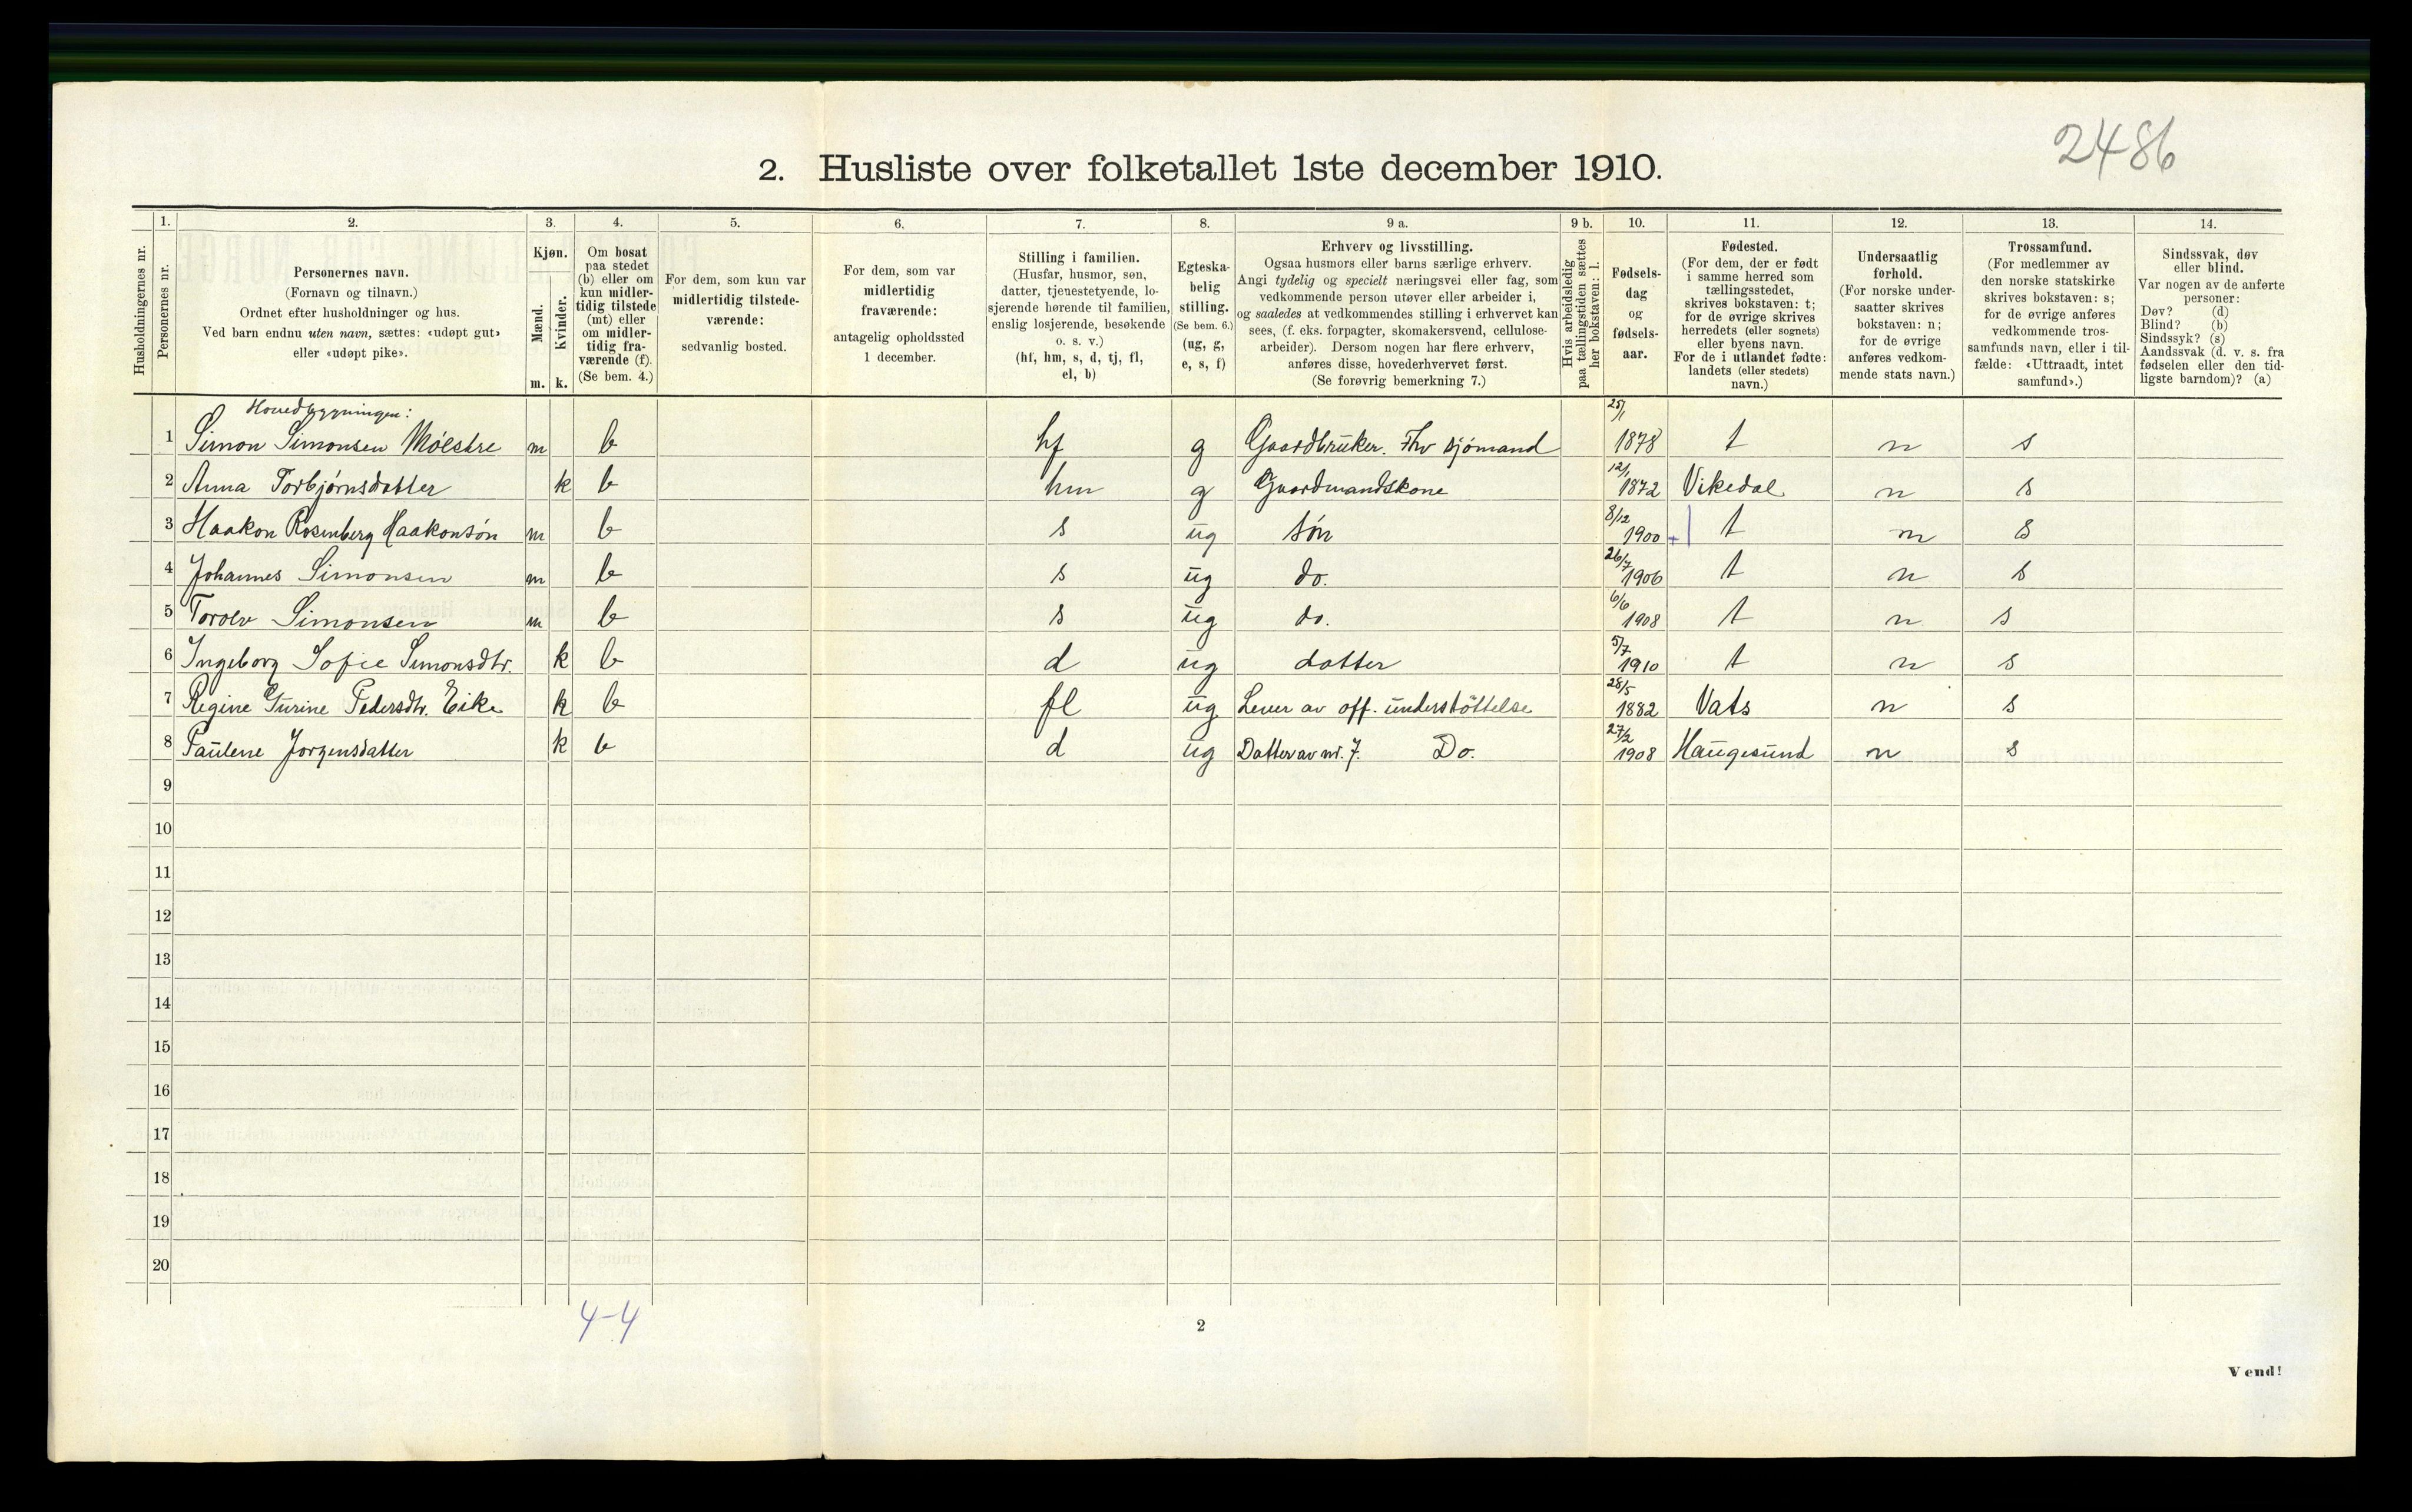 2486
2. Husliste over folketallet 1ste december 1910.
Husholdningernes nr.
1.
Personernes nr.
2.
Personernes navn.
(Fornavn og tilnavn.)
Ordnet efter husholdninger og hus.
Ved barn endnu uten navn, sættes: «udøpt gut»
eller «udøpt pike».
3.
Kjøn.
Mænd.
Kvinder.
m. k.
4.
Om bosat
paa stedet
(b) eller om
kun midler-
tidig tilstede
(mt) eller
om midler-
tidig fra-
værende (f).
(Se bem. 4.)
5.
For dem, som kun var
midlertidig tilstede-
værende:
sedvanlig bosted.
6.
For dem, som var
midlertidig
fraværende:
antagelig opholdssted
1 december.
7.
Stilling i familien.
(Husfar, husmor, søn,
datter, tjenestetyende, lo-
sjerende hørende til familien,
enslig losjerende, besøkende
o. s. v.)
(hf, hm, s, d, tj, fl,
el, b)
8.
Egteska-
belig
stilling.
(Se bem. 6.)
(ug, g,
e, s, f)
9 a.
Erhverv og livsstilling.
Ogsaa husmors eller barns særlige erhverv.
Angi tydelig og specielt næringsvei eller fag, som
vedkommende person utøver eller arbeider i,
og saaledes at vedkommendes stilling i erhvervet kan
sees, (f. eks. forpagter, skomakersvend, cellulose-
arbeider). Dersom nogen har flere erhverv,
anføres disse, hovederhvervet først.
(Se forøvrig bemerkning 7.)
9 b.
Hvis arbeidsledig
paa tællingstiden sættes
her bokstaven: l.
10.
Fødsels-
dag
og
fødsels-
aar.
11.
Fødested.
(For dem, der er født
i samme herred som
tællingsstedet,
skrives bokstaven: t;
for de øvrige skrives
herredets (eller sognets)
eller byens navn.
For de i utlandet fødte:
landets (eller stedets)
navn.)
12.
Undersaatlig
forhold.
(For norske under-
saatter skrives
bokstaven: n;
for de øvrige
anføres vedkom-
mende stats navn.)
13.
Trossamfund.
(For medlemmer av
den norske statskirke
skrives bokstaven: s;
for de øvrige anføres
vedkommende tros-
samfunds navn, eller i til-
fælde: «Uttraadt, intet
samfund».)
14.
Sindssvak, døv
eller blind.
Var nogen av de anførte
personer:
Døv? (d)
Blind? (b)
Sindssyk? (s)
Aandssvak (d. v. s. fra
fødselen eller den tid-
ligste barndom)? (a)
Hovedbygningen:
1 Simon Simonsen Mölstre m b hf g Gaardbruker. Fhv sjómand 25/1 1878 t n s
2 Anna Torbjørnsdatter k b hm g Gaardmandskone 12/1 1872 Vikedal n s
3 Haakon Rosenberg Haakonsón m b s ug són 8/12 1900 t n s
4 Johannes Simonsen m b s ug do. 26/7 1906 t n s
5 Torolv Simonsen m b s ug do. 6/6 1908 t n s
6 Ingeborg Sofie Simonsdtr. k b d ug datter 5/7 1910 t n s
7 Regine Gurine Pedersdtr. Eike k b fl ug Lever av off. understöttelse 28/5 1882 Vats n s
8 Paulene Jorgensdatter k b d ug Datter av nr. 7. Do. 27/2 1908 Haugesund n s
9
10
11
12
13
14
15
16
17
18
19
20
4-4
2
Vend!